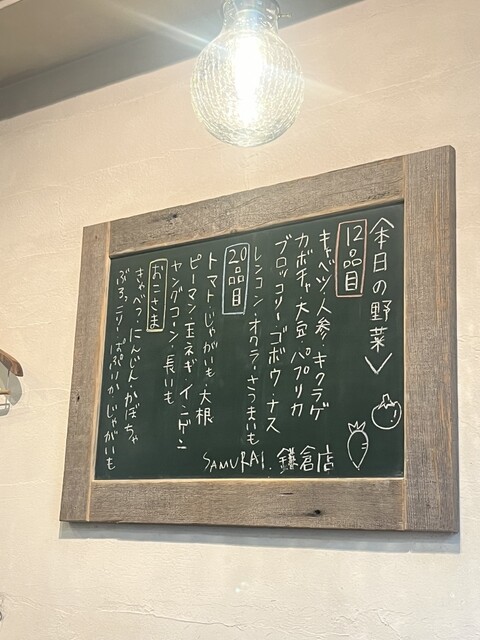 本日の野菜
12品目
キャベツ・人参・キクラゲ
カボチャ・大豆・パプリカ
ブロッコリー・ゴボウ・ナス
レンコン・オクラ・さつまいも
20品目
トマト・じゃがいも・大根
ピーマン・玉ネギ・インゲン
ヤングコーン・長いも
おこさま
きゃべつ・にんじん・かぼちゃ
ぶろっこりー・ぱぷりか・じゃがいも
SAMURAI. 鎌倉店